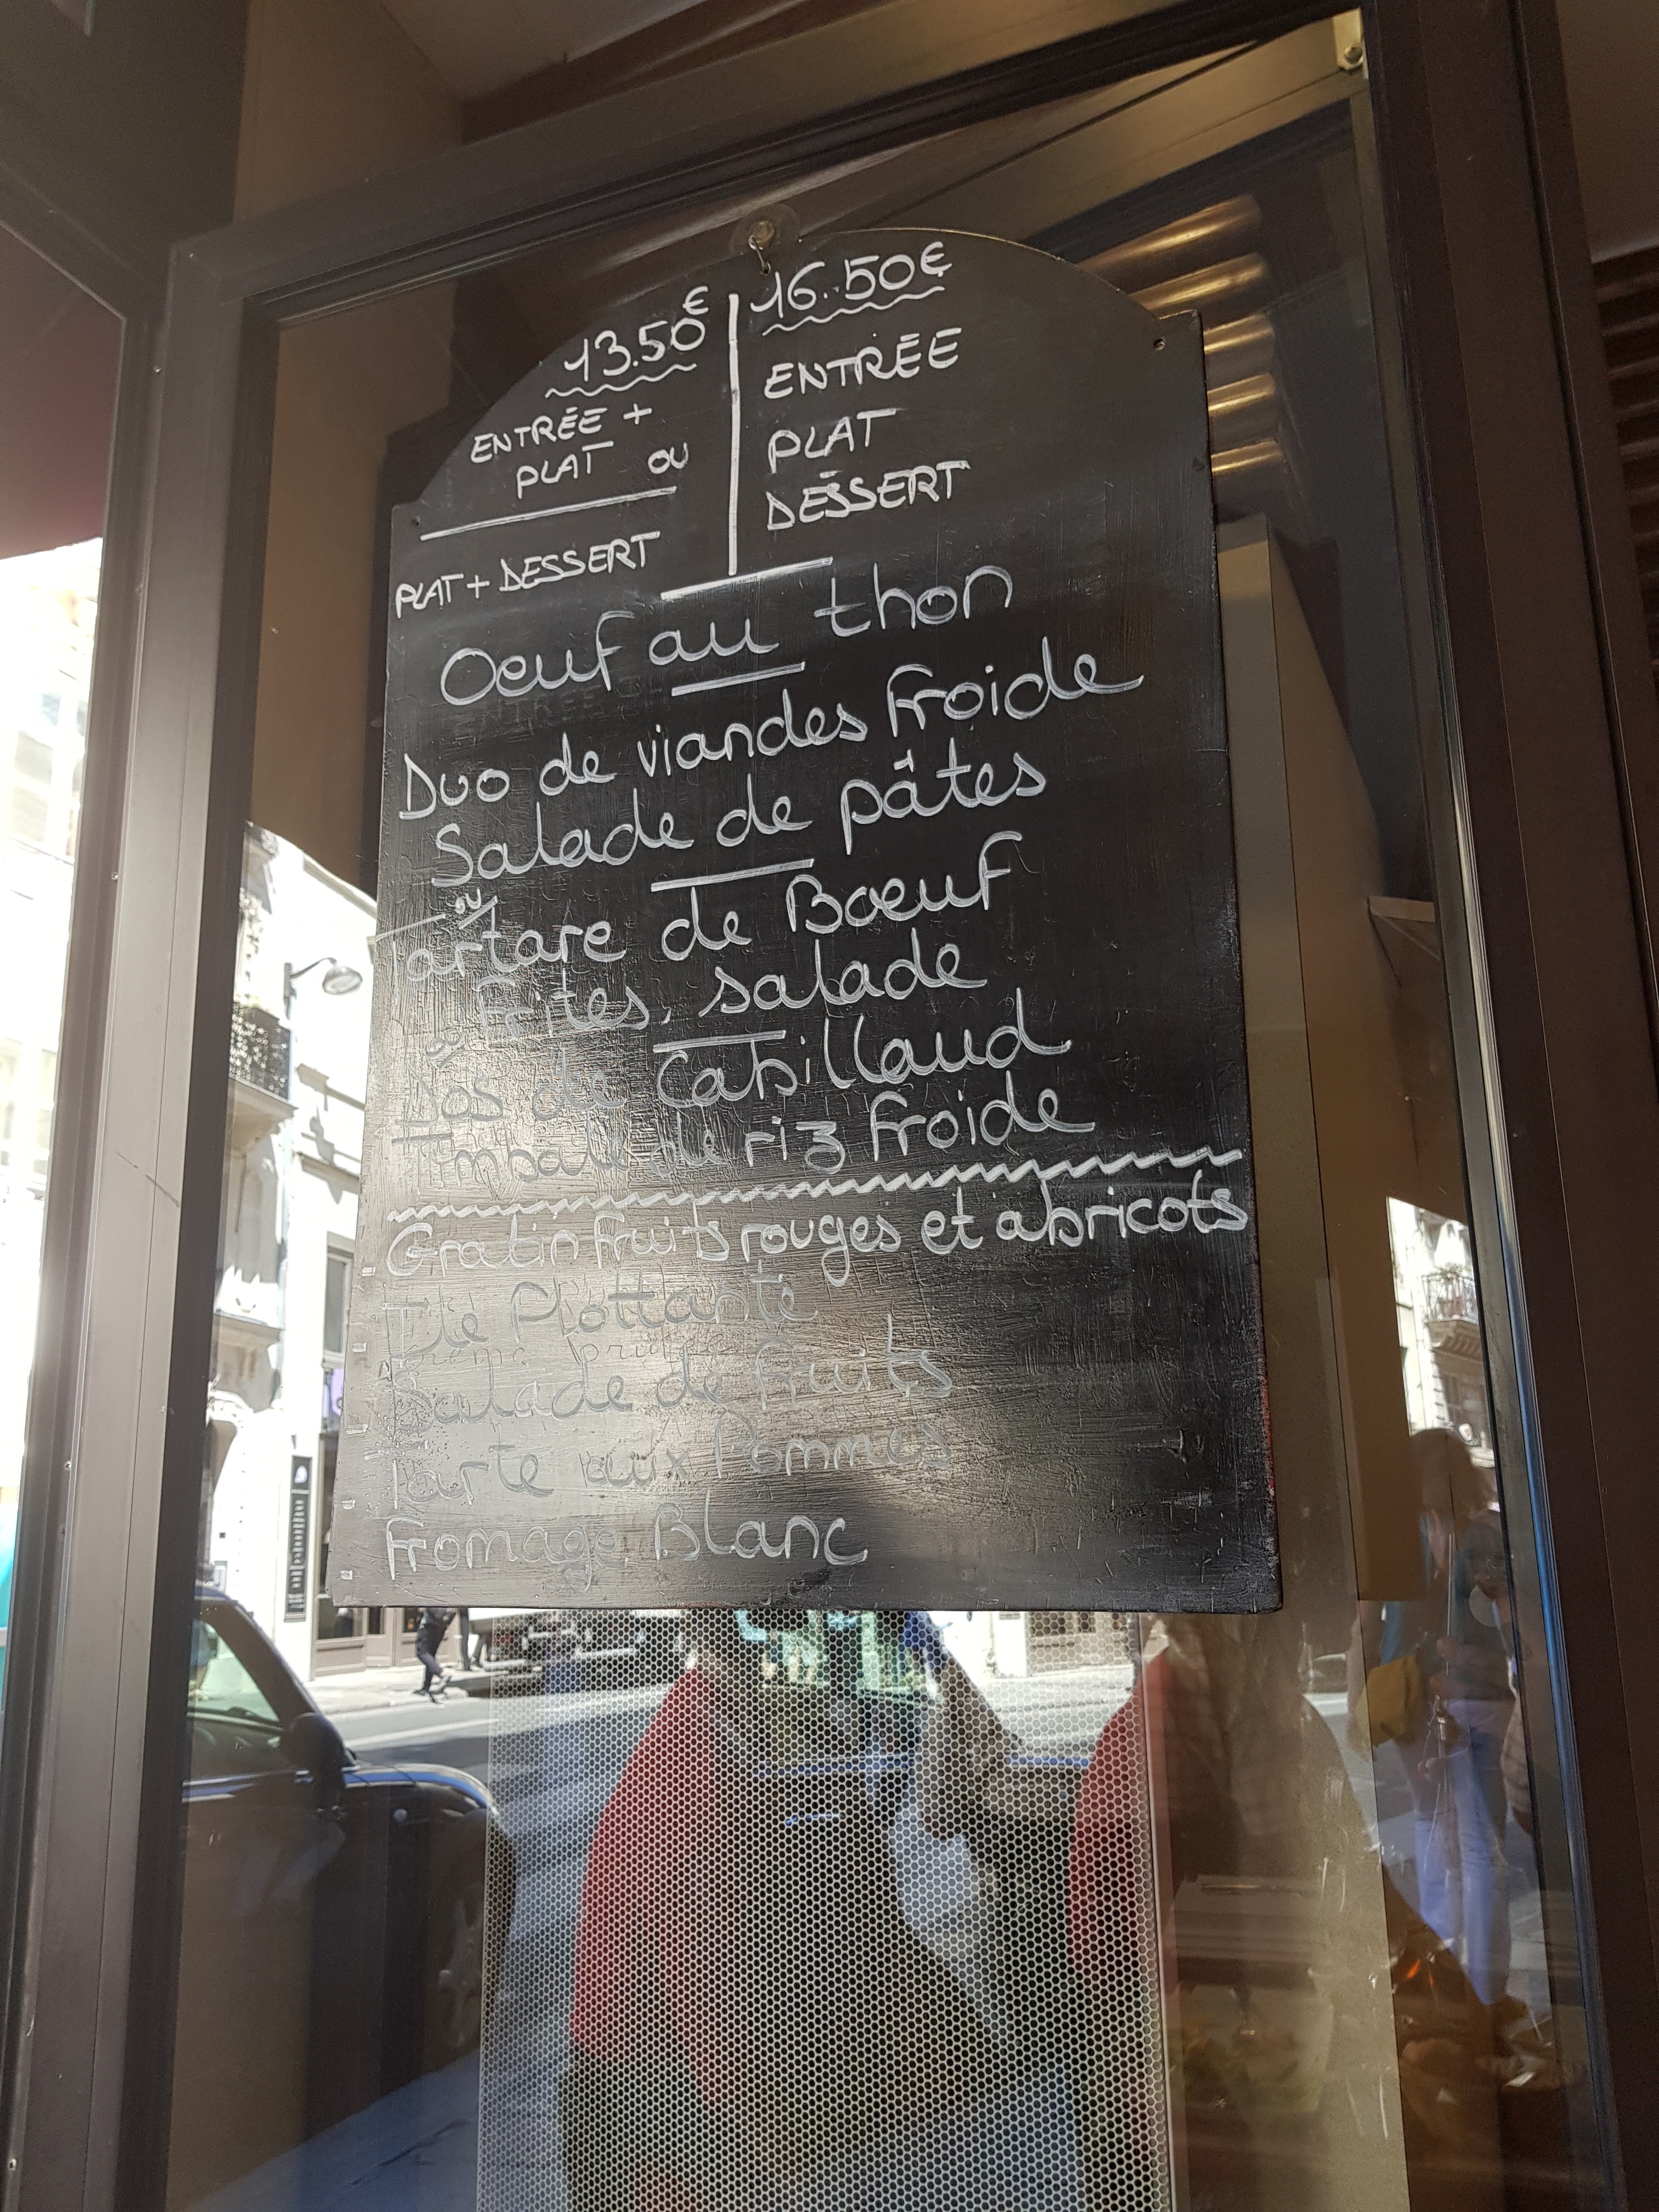 13.50€
ENTRÉE +
PLAT OU
PLAT + DESSERT
16.50€
ENTRÉE
PLAT
DESSERT
Oeuf au thon
Duo de viandes froide
Salade de pâtes
ou
Tartare de Bœuf
frites, salade
ou
Dos de Cabillaud
Timbale de riz froide
Gratin fruits rouges et abricots
Ile Flottante
Salade de fruits
Tarte aux Pommes
Fromage Blanc